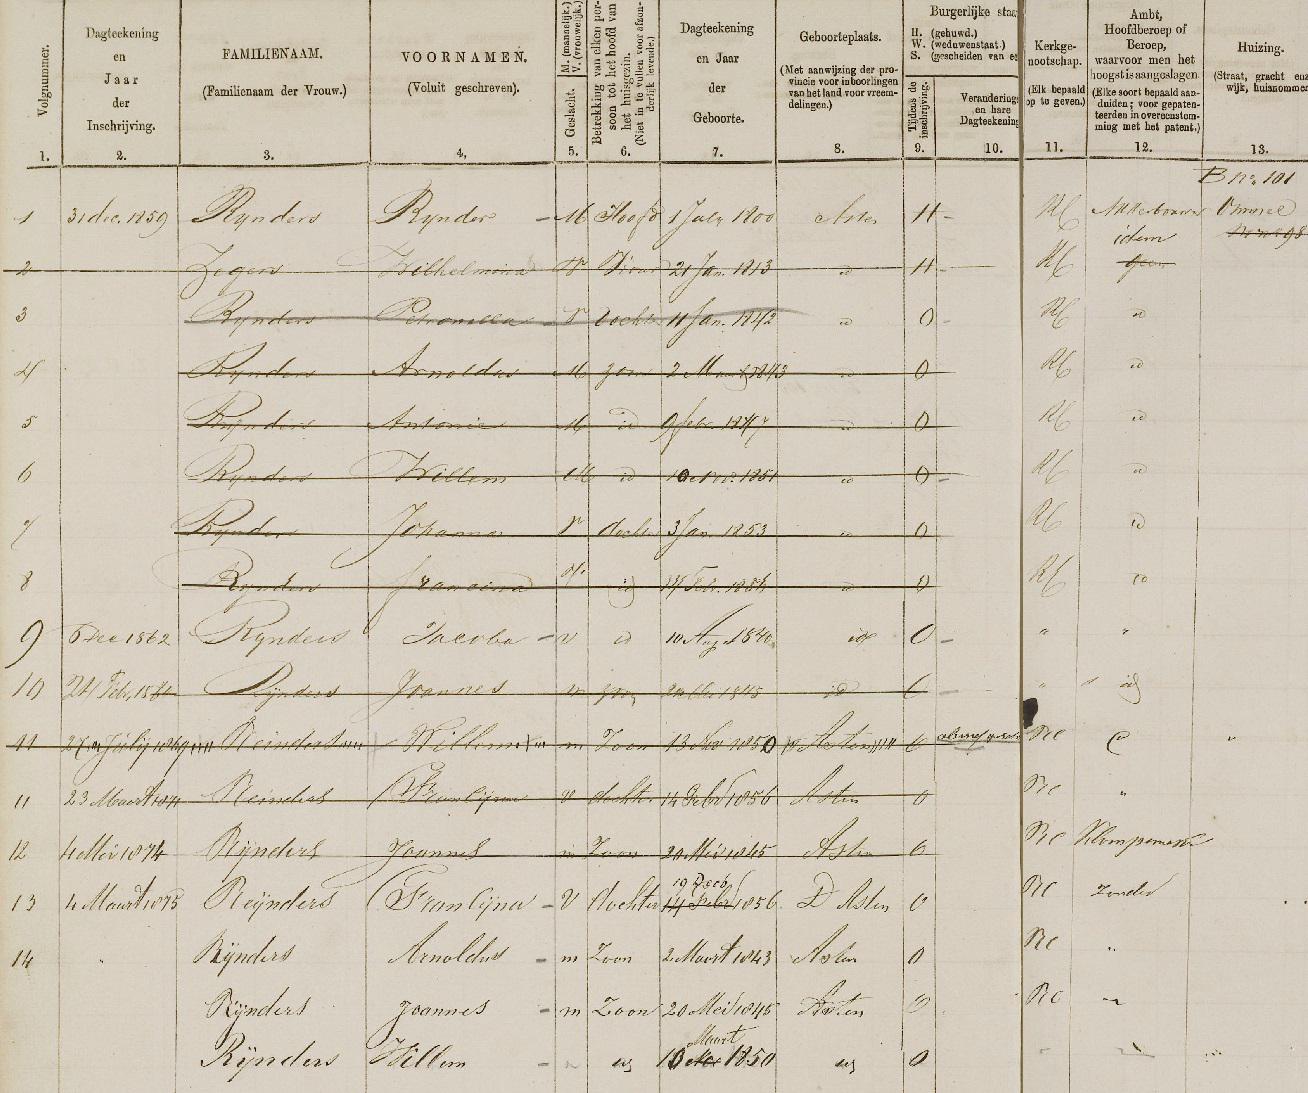 Volgnummer.
Dagteekening
en
Jaar
der
Inschrijving.
FAMILIENAAM.
(Familienaam der Vrouw.)
VOORNAMEN.
(Voluit geschreven).
Geslacht. M. (mannelijk.) V. (vrouwelijk.)
Betrekking van elken per-
soon tot het hoofd van
het huisgezin.
(Niet in te vullen voor afzon-
derlijk levende.)
Dagteekening
en Jaar
der
Geboorte.
Geboorteplaats.
(Met aanwijzing der pro-
vincie voor inboorlingen
van het land voor vreem-
delingen.)
Burgerlijke staa
H. (gehuwd.)
W. (weduwenstaat.)
S. (gescheiden van e
Tijdens de
inschrijving.
Verandering
en hare
Dagteekening
Kerkge-
nootschap.
(Elk bepaald
op te geven.)
Ambt,
Hoofdberoep of
Beroep,
waarvoor men het
hoogst is aangeslagen
(Elke soort bepaald aan-
duiden; voor gepaten-
teerden in overeenstem-
ming met het patent.)
Huizing.
(Straat, gracht en
wijk, huisnommer
1. 2. 3. 4. 5. 6. 7. 8. 9. 10. 11. 12. 13.
B no. 101
1 31 dec. 1859 Rynders Rynder M Hoofd 1 July 1800 Asten H RC Akkerbouwer Ommel
idem
2 Wilhelmina V 21 Jan. 1813 id H RC geen
3 Rynders Petronella V dochter 11 Jan. 1842 id O RC id
4 Rynders Arnoldus M zoon 2 Maart 1843 id O RC id
5 Rynders Antonie M id 9 febr. 1847 id O RC id
6 Rynders Willem M id 10 nov. 1850 id O RC id
7 Rynders Johanna V dochter 3 Jan. 1853 id O RC id
8 Rynders Francina V id 14 Febr. 1856 id O RC id
9 6 Dec 1862 Rynders Jacoba v id 10 Aug. 1840 id O " "
10 Rijnders Joannes m 1845 id O " id
11 27 Julij 1869 Reinders Willem m Zoon 13 Nov 1850 Asten O RC "
11 23 Maart Reinders Franlijna V dochter 14 Febr 1856 Asten O RC "
12 4 Mei 1874 Rijnders Joannes m Zoon 20 Mei 1845 Asten O RC Klompenmaker
19 Decb
13 4 Maart 1875 Reijnders Franlijna V dochter 14 Febr 1856 Asten O RC zonder
14 " Rijnders Arnoldus m Zoon 2 Maart 1843 Asten O RC "
Rijnders Joannes m Zoon 20 Mei 1845 Asten O RC "
Maart
Rijnders Willem " 10 Nov 1850 O